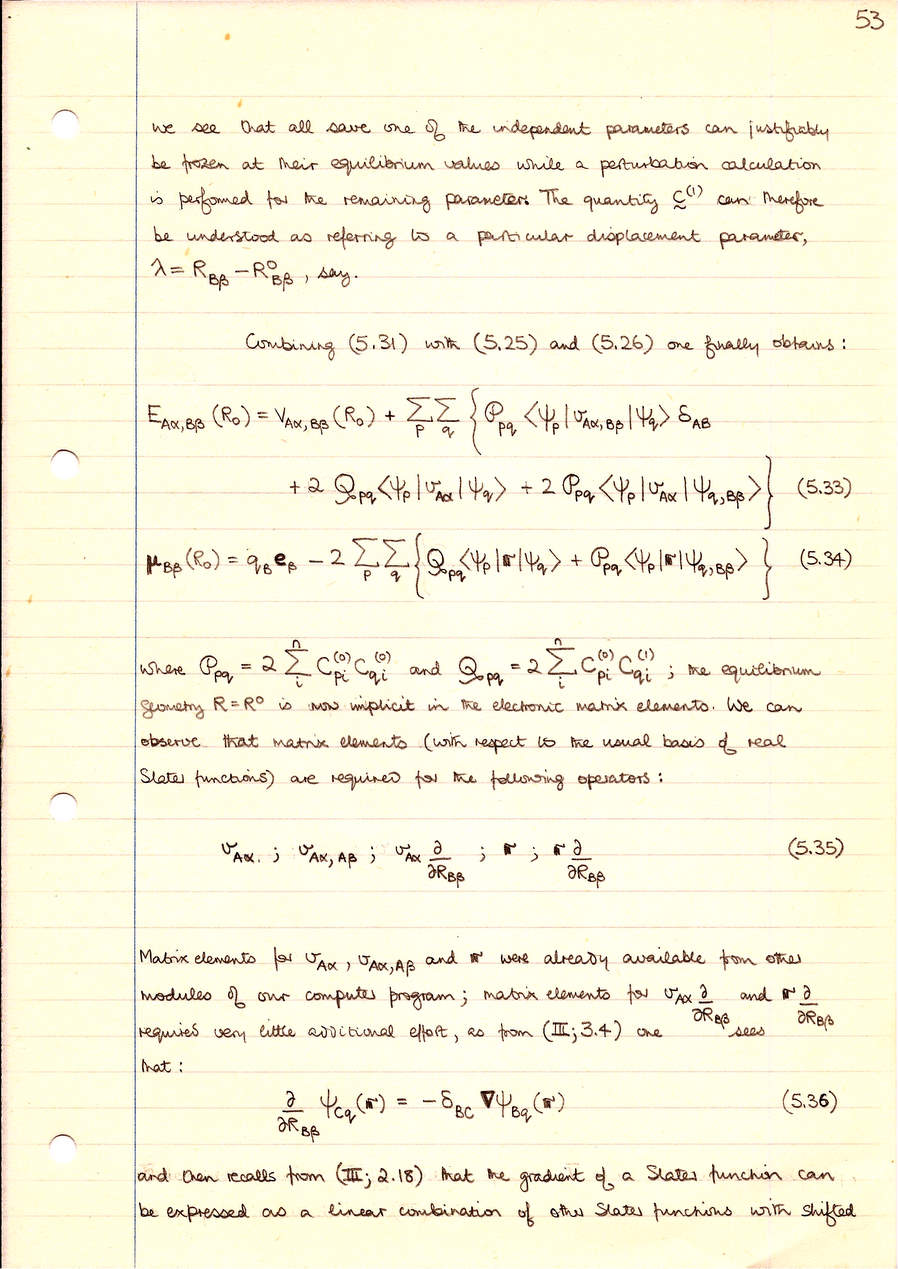 53
we see that all save one of the independent parameters can justifiably
be frozen at their equilibrium values while a perturbation calculation
is performed for the remaining parameter. The quantity C̰⁽¹⁾ can therefore
be understood as referring to a particular displacement parameter,
λ = R_Bβ − R⁰_Bβ , say.
Combining (5.31) with (5.25) and (5.26) one finally obtains :
E_Aα,Bβ (R₀) = V_Aα,Bβ (R₀) + Σ_p Σ_q { P_pq <ψ_p | v_Aα,Bβ | ψ_q> δ_AB
+ 2 Q_pq <ψ_p | v_Aα | ψ_q> + 2 P_pq <ψ_p | v_Aα | ψ_q,Bβ> } (5.33)
μ_Bβ (R₀) = q_B e_β − 2 Σ_p Σ_q { Q_pq <ψ_p | r | ψ_q> + P_pq <ψ_p | r | ψ_q,Bβ> } (5.34)
where P_pq = 2 Σ_i^n C_pi^(0) C_qi^(0) and Q_pq = 2 Σ_i^n C_pi^(0) C_qi^(1) ; the equilibrium
geometry R = R⁰ is now implicit in the electronic matrix elements. We can
observe that matrix elements (with respect to the usual basis of real
Slater functions) are required for the following operators :
v_Aα. ; v_Aα,Aβ ; v_Aα ∂/∂R_Bβ ; r ; r ∂/∂R_Bβ (5.35)
Matrix elements for v_Aα , v_Aα,Aβ and r were already available from other
modules of our computer program ; matrix elements for v_Aα ∂/∂R_Bβ and r ∂/∂R_Bβ
required very little additional effort, as from (III; 3.4) one sees
that :
∂/∂R_Bβ ψ_Cq (r) = − δ_BC ∇ψ_Bq (r) (5.36)
and then recalls from (III; 2.18) that the gradient of a Slater function can
be expressed as a linear combination of other Slater functions with shifted